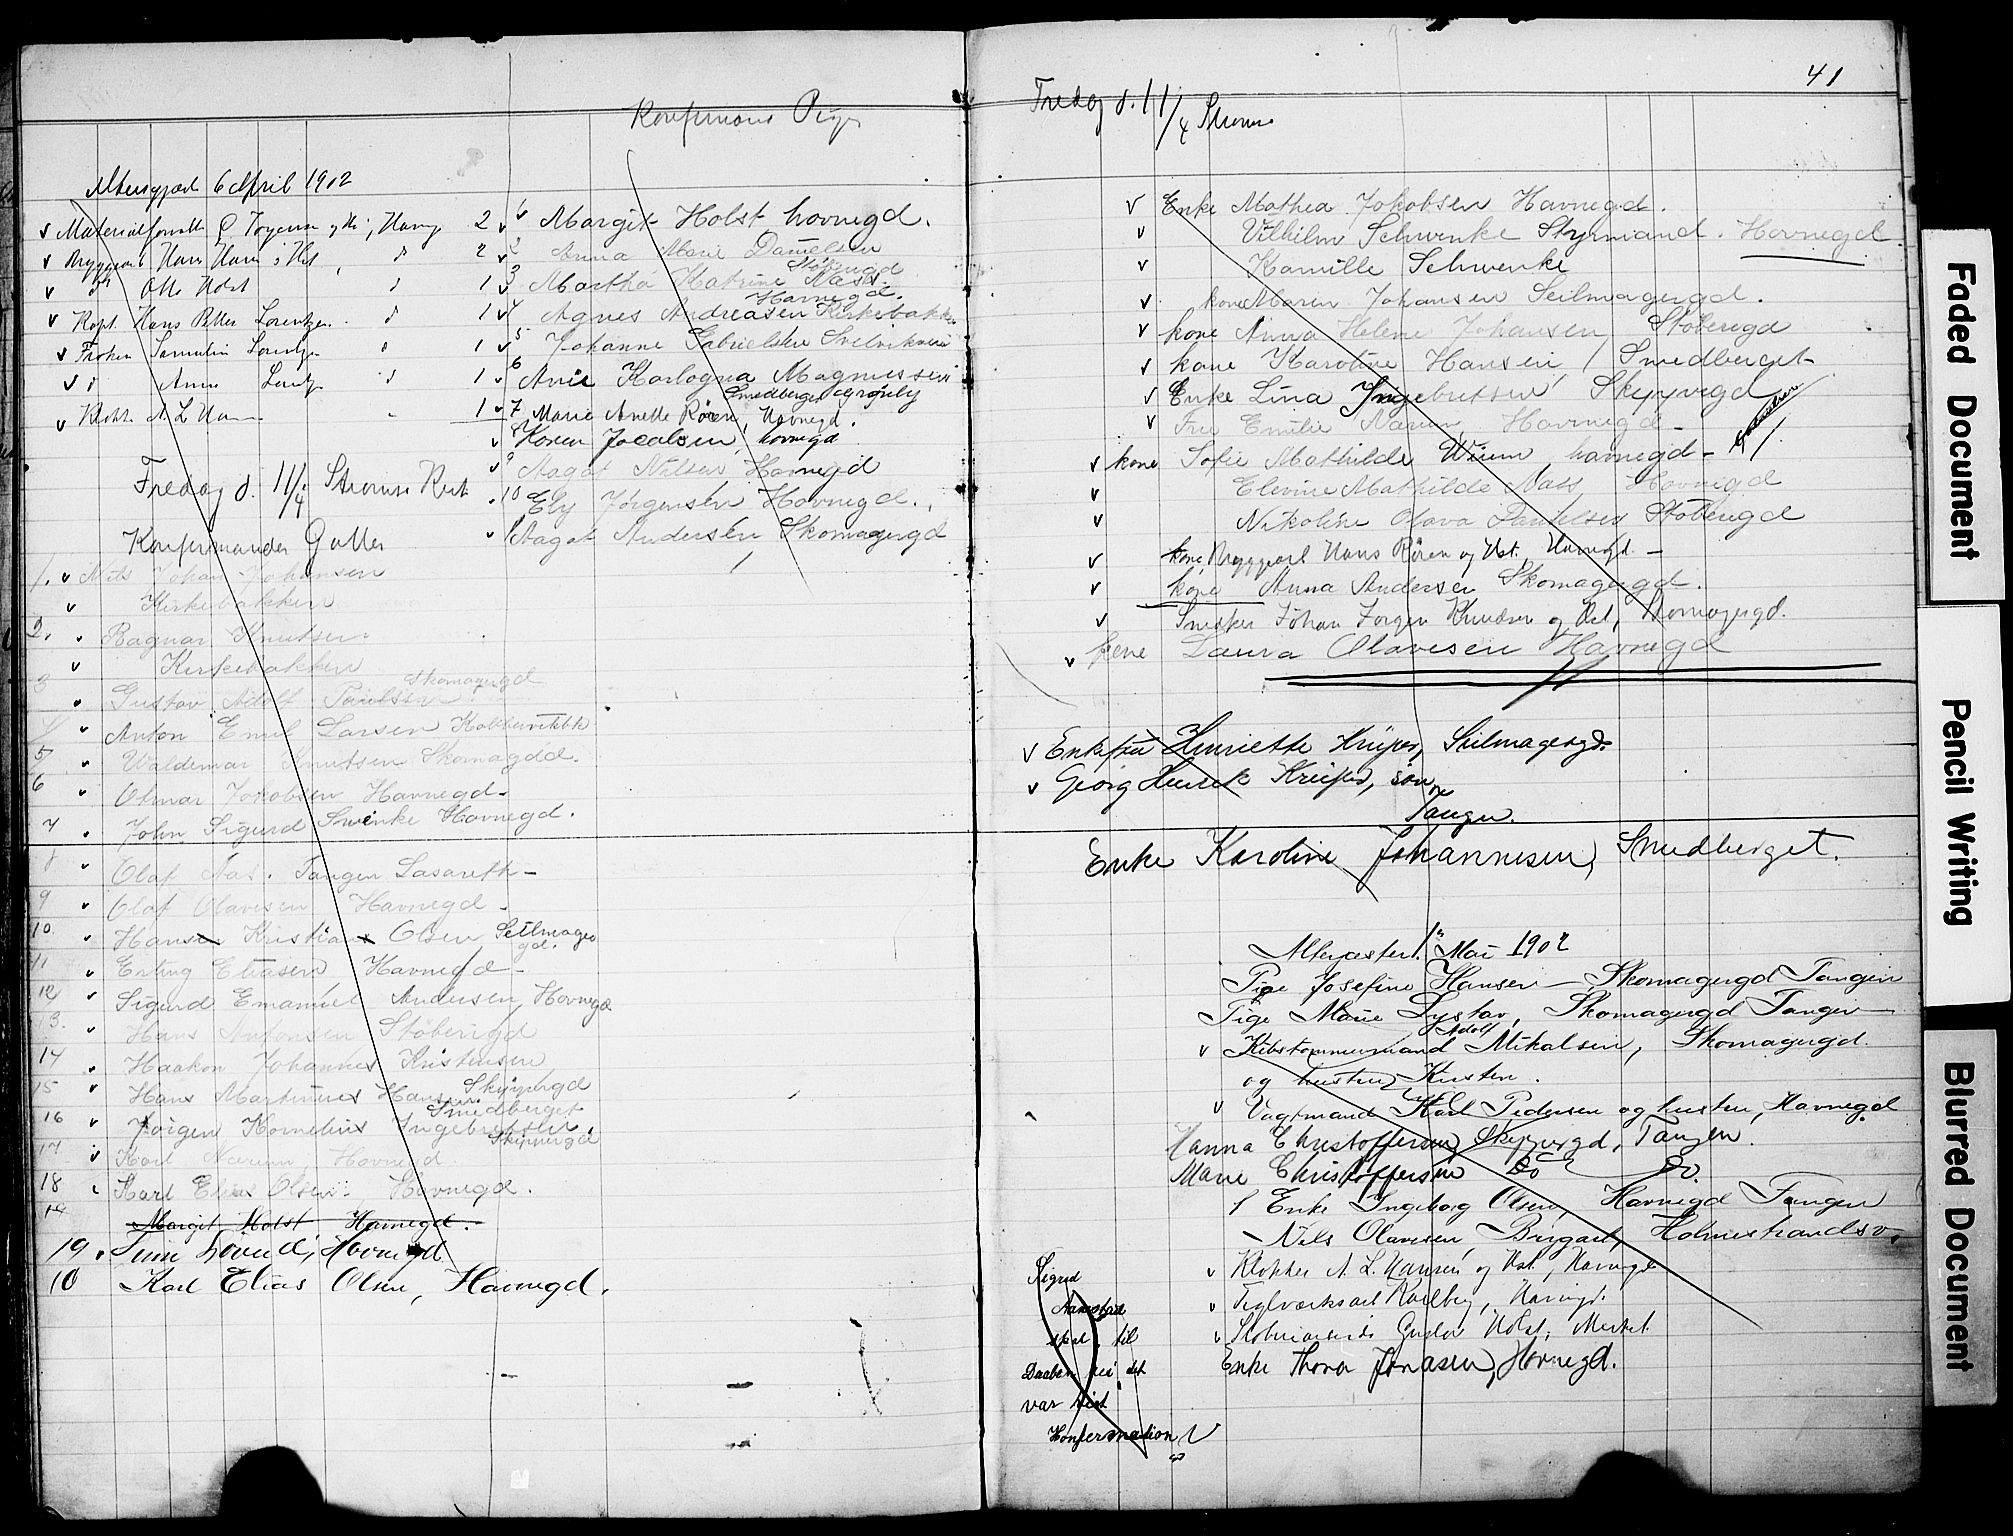 Altersgjæst 6 April 1902
Materialforvalt
2
Hans Hansen
2
Otto Holst
1
Kapt. Hans Petter Lorentzen
1
Frøken Lorentzen
1
Anna Lorentz
1
Klokk. A. L. Han
1
Fredag d. 11/4 Strømsø Kirk
Konfirmander Gutter
1. Nils Johan Johansen
Kirkebakken
2. Ragnar Knutsen
Kirkebakken
3 Gustav Adolf Paulsen Skomagergd
4 Anton Emil Larsen Kobbervikbk
5 Waldemar Knutsen Skomagdd.
6 Olmar Jakobsen Havnegd-
7 John Sigurd Swinke Havnegd.
8 Olaf Nas. Tangen Lasareth-
9 Olaf Olavesen Havnegd-
10 Hansen Kristian Olsen Seilmager
gd.
11 Erling Eliasen Havnegd-
12 Sigurd Emanuel Andersen, Havnegd
13. Hans Antonsen Støberigd
14 Haakon Johannes Kristensen
15 Hans Martinius Hansen Skippergd
Smedberget
16 Jørgen Kornelius Ingebretsen
Skippergd
17 Karl Narum, Havnegd
18 Karl Elias Olsen, Havnegd.
19 Margit Holst Havnegd.
19. Havnegd
10 Karl Elias Olsen, Havnegd.
Konfirmans Piger
1 Margit Holst havnegd.
2 Anna Marie Danielsen
Støberigd
3 Martha Katrine Nass.
Havnegd.
4 Agnes Andreasen Kirkebakke
5 Johanne Gabrielsen Svelvikveien
6 Anie Karlogna Magnussen
Smedberget
7 Marie Anette Røren, Havnegd.
8 Karen Jacobsen, havnegd
9 Aagot Nilsen Havnegd
10 Ely Jørgensen Havnegd.
Aagot Andersen Skomagergd
41
Fredag d. 11/4 Strømsø
Enke Mathea Jakobsen Havnegd.
Vilhilm Schwenke Styrmand. Havnegd
Kamille Schwenke
kone Maren Johansen Seilmagergd.
kone Anna Helene Johansen, Støberigd
kone Karoline Hansen, Smedberget
Enke Lina Ingebretsen, Skippergd
Fru Emilie Narum Havnegd-
kone Sofie Mathilde Wium havnegd-
Elevine Mathilde Nass Havnegd
Nikoline Olava Danielsen Støberigd
kone, Bryggearb Hans Røren og Hst, Havnegd-
kone Anna Andersen Skomagergd.
Snedker Johan Jørgen Knudsen og Hst, Skomagergd.
kone Laura Olavesen Havnegd
Enkefru Henriette Kniper, Seilmagergd.
Georg Henrik Kniper, søn
Tangen.
Enke Karoline Johannesen, Smedberget.
Altergæster 1. Mai 1902
Pige Josefine Hansen-Skomagergd Tangen
Pige Marie Lystav, Skomagergd Tangen
Adolf
Skibstømmermand Mikalsen, Skomagergd.
og hustru Kirsten.
Vagtmand Karl Pedersen og hustru, Havnegd
Hanna Christoffersen, Skippergd, Tangen.
Marie Christoffersen Do Do.
Enke Ingeborg Olsen, Havnegd Tangen
Nils Olavesen, Brygarb, Holmestrandsv.
Klokker A. L. Hansen og Hst, Havnegd
Teglværksarb Karlberg, Havnegd.
Gustav Holst, Merket
Enke Thora Jonasen, Havnegd.
Sigrid
Aamodt
skal til
Daaben
var sidst
Konfermation
Faded Document
Pencil Writing
Blurred Document